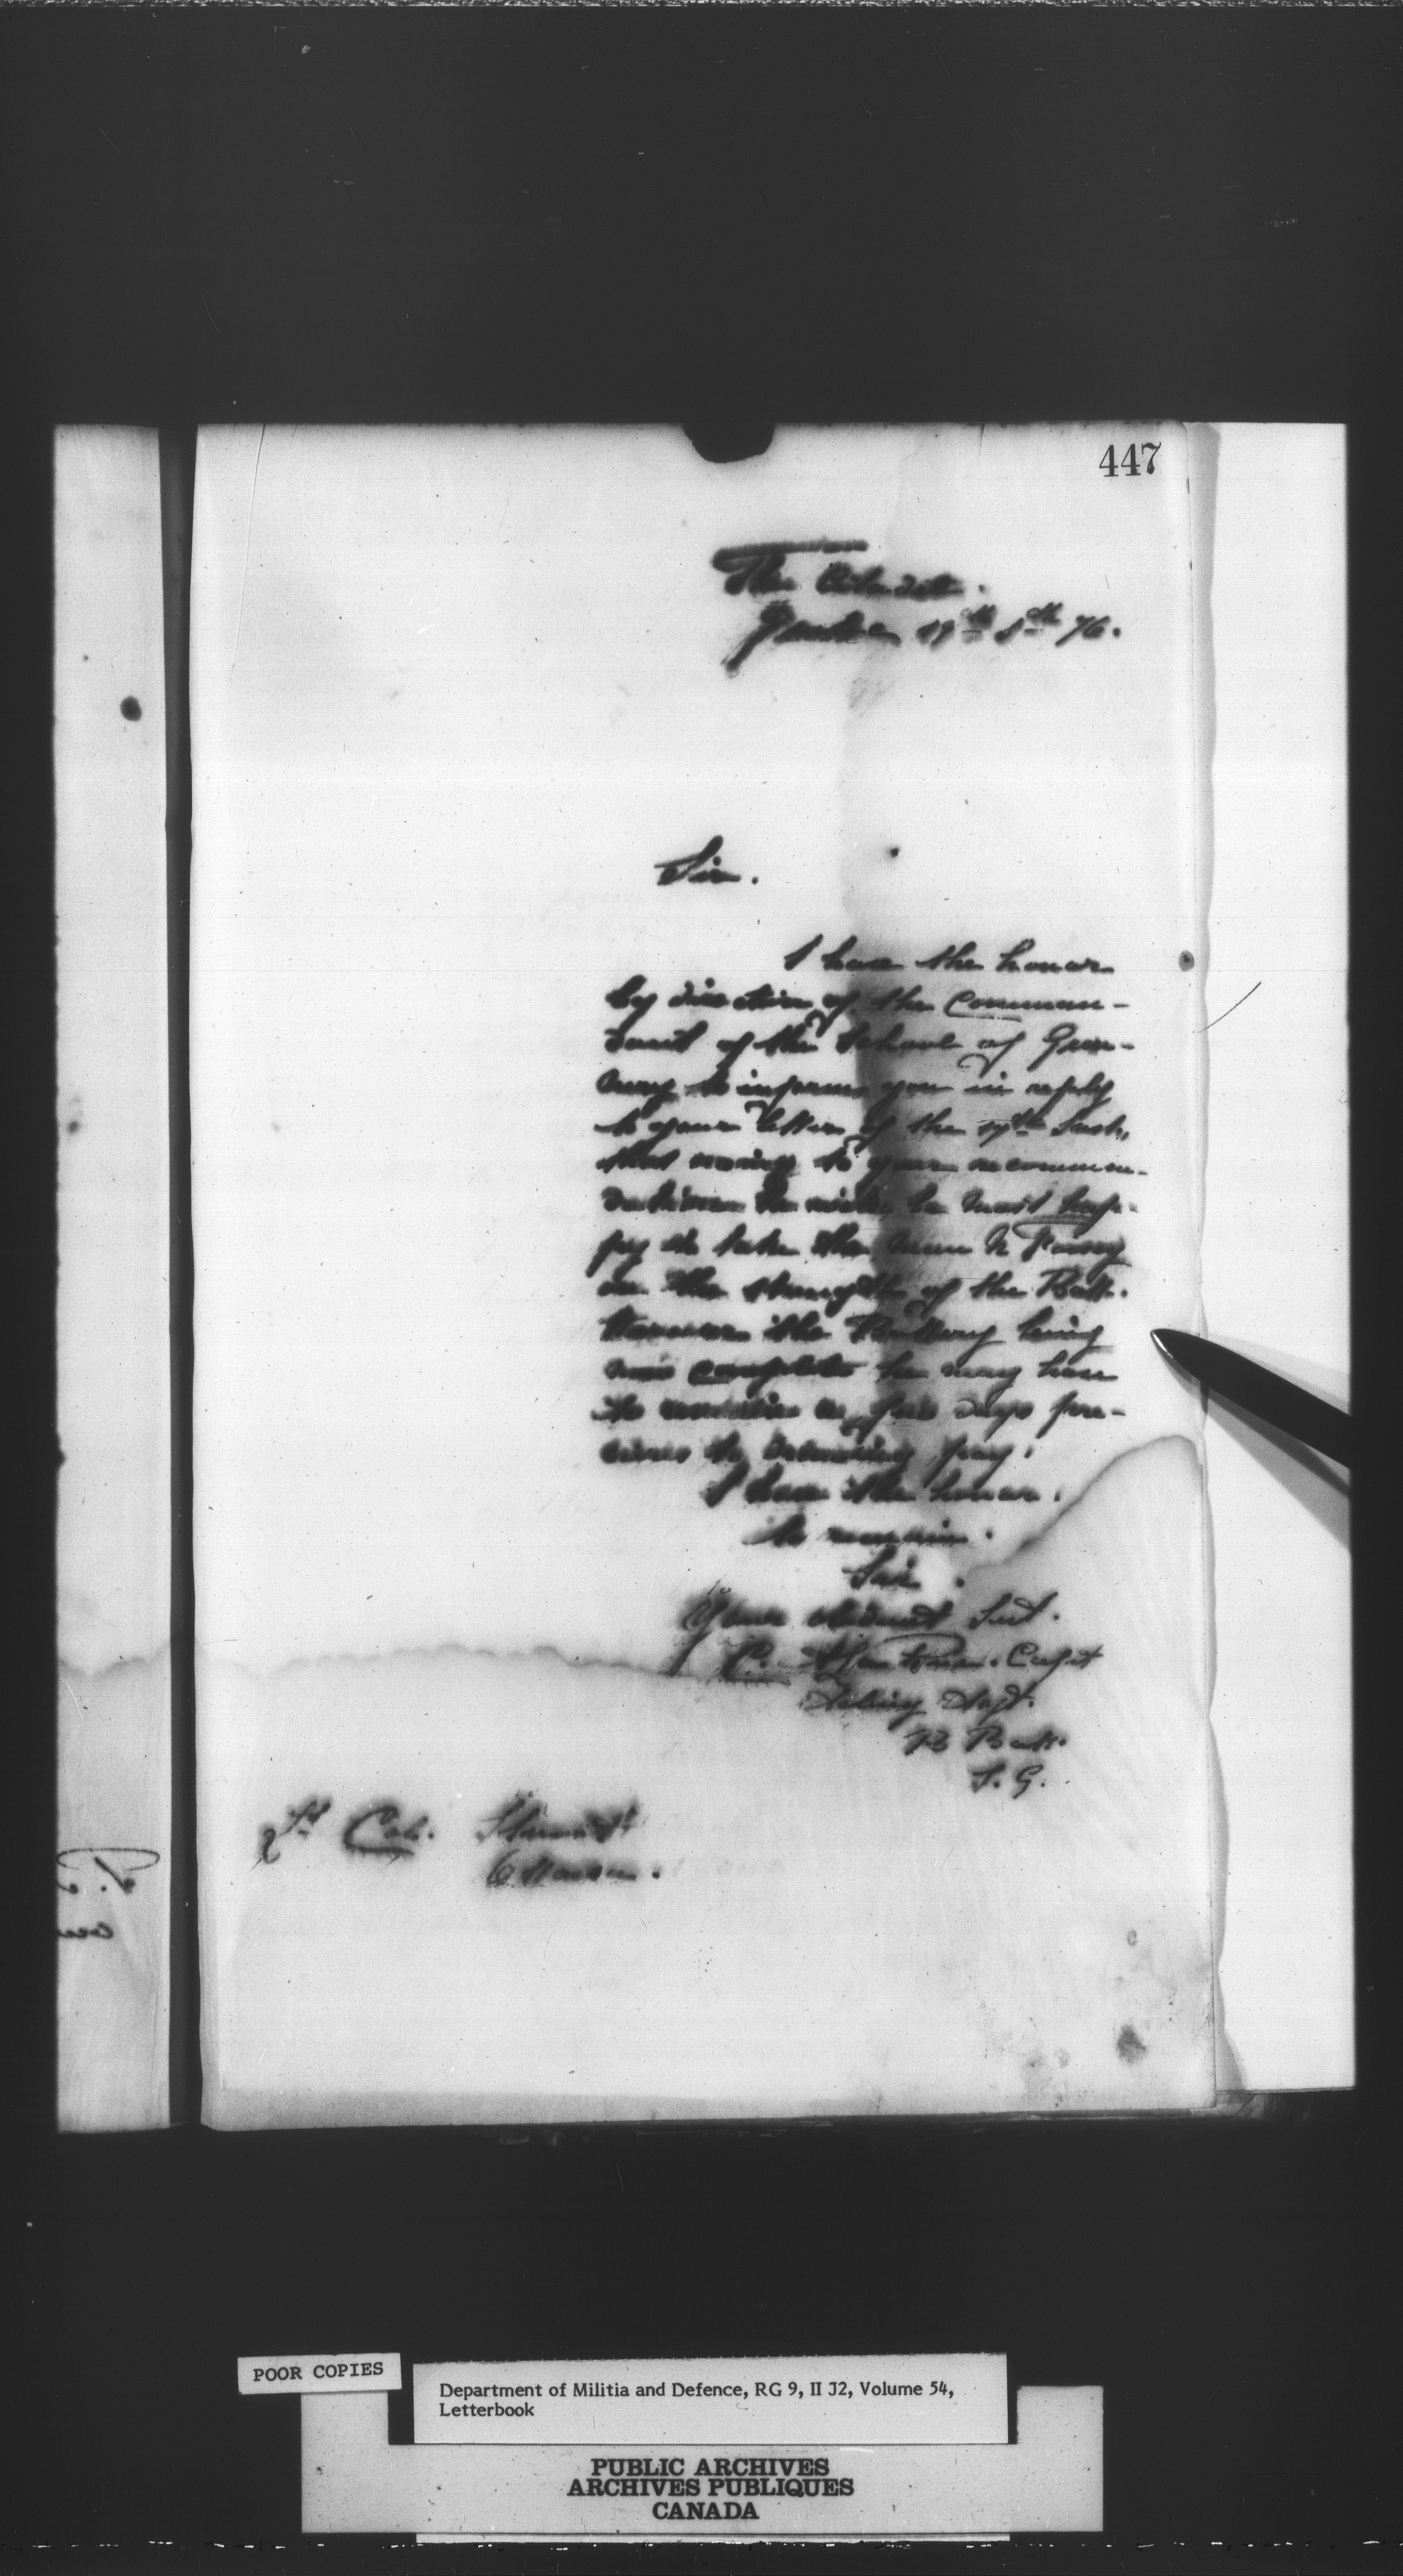 447
The Citadel.
Quebec 19th 8th 76.
Sir.
I have the honour
by direction of the Comman-
dant of the School of Gun-
nery to inform you in reply
to your letter of the 17th Inst.,
that owing to your recommen-
dation he will be most hap-
py to take the man
on the strength of the Batt.
However the Battery being
now complete he may have
to remain a few days pre-
vious to drawing pay.
I have the honour.
to remain.
Sir.
Your obedient Svt.
C. Capt
Acting Adjt.
B Batt.
S. G.
Lt Col.
Ottawa.
POOR COPIES
Department of Militia and Defence, RG 9, II J2, Volume 54,
Letterbook
PUBLIC ARCHIVES
ARCHIVES PUBLIQUES
CANADA